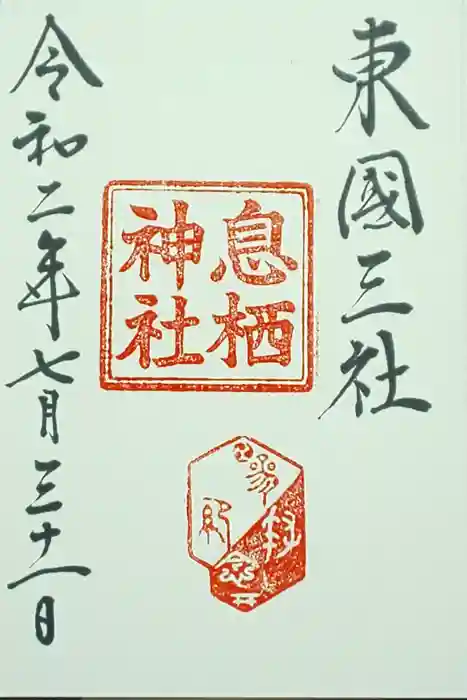 東國三社
息栖
神社
令和二年七月三十一日